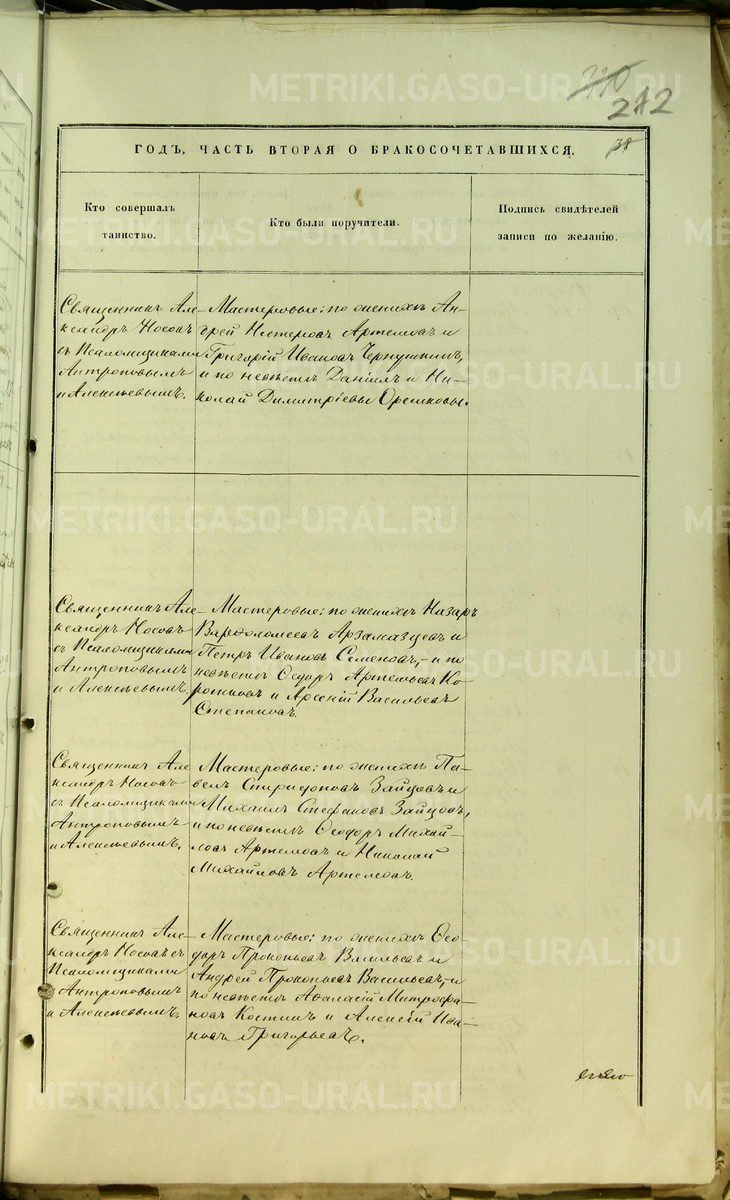 210
212
ГОДЪ, ЧАСТЬ ВТОРАЯ О БРАКОСОЧЕТАВШИХСЯ.
38
Кто совершалъ
таинство.
Кто были поручители.
Подпись свидѣтелей
записи по желанію.
Священникъ Але-
ксандръ Носовъ
съ Псаломщиками
Антроповымъ
и Алексѣевымъ.
Мастеровые: по женихѣ Ан-
дрей Нестеровъ Артемовъ и
Григорій Ивановъ Чернушкинъ,
и по невѣстѣ Даніилъ и Ни-
колай Димитріевы Орешковы.
Священникъ Але-
ксандръ Носовъ
съ Псаломщиками
Антроповымъ
и Алексѣевымъ.
Мастеровые: по женихѣ Назаръ
Варфоломеевъ Арзамазцевъ и
Петръ Ивановъ Семеновъ, - и по
невѣстѣ Ѳедоръ Артемьевъ Ко-
ротковъ и Арсеній Васильевъ
Степановъ.
Священникъ Але-
ксандръ Носовъ
съ Псаломщиками
Антроповымъ
и Алексѣевымъ.
Мастеровые: по женихѣ Па-
велъ Спиридоновъ Зайцевъ и
Михаилъ Стефановъ Зайцовъ,
и по невѣстѣ Ѳеодоръ Михай-
ловъ Артемовъ и Николай
Михайловъ Артемовъ.
Священникъ Але-
ксандръ Носовъ съ
Псаломщиками
Антроповымъ
и Алексѣевымъ.
Мастеровые: по женихѣ Ѳео-
доръ Прокопьевъ Васильевъ и
Андрей Прокопьевъ Васильевъ, - и
по невѣстѣ Аѳанасій Митрофа-
новъ Костинъ и Алексѣй Ива-
новъ Григорьевъ.
METRIKI.GASO-URAL.RU